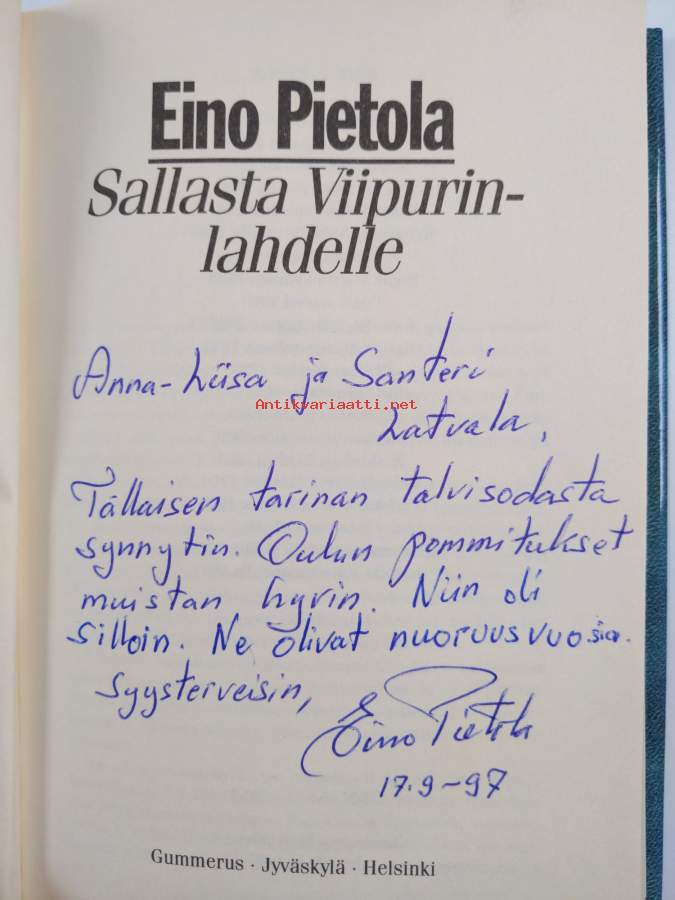 Eino Pietola
Sallasta Viipurin-
lahdelle
Anna-Liisa ja Santeri
Antikvariaatti.net
Latvala,
Tällaisen tarinan talvisodasta
synnytin. Oulun pommitukset
muistan hyvin. Niin oli
silloin. Ne olivat nuoruusvuosia.
Syysterveisin,
Eino Pietola
17.9-97
Gummerus · Jyväskylä · Helsinki